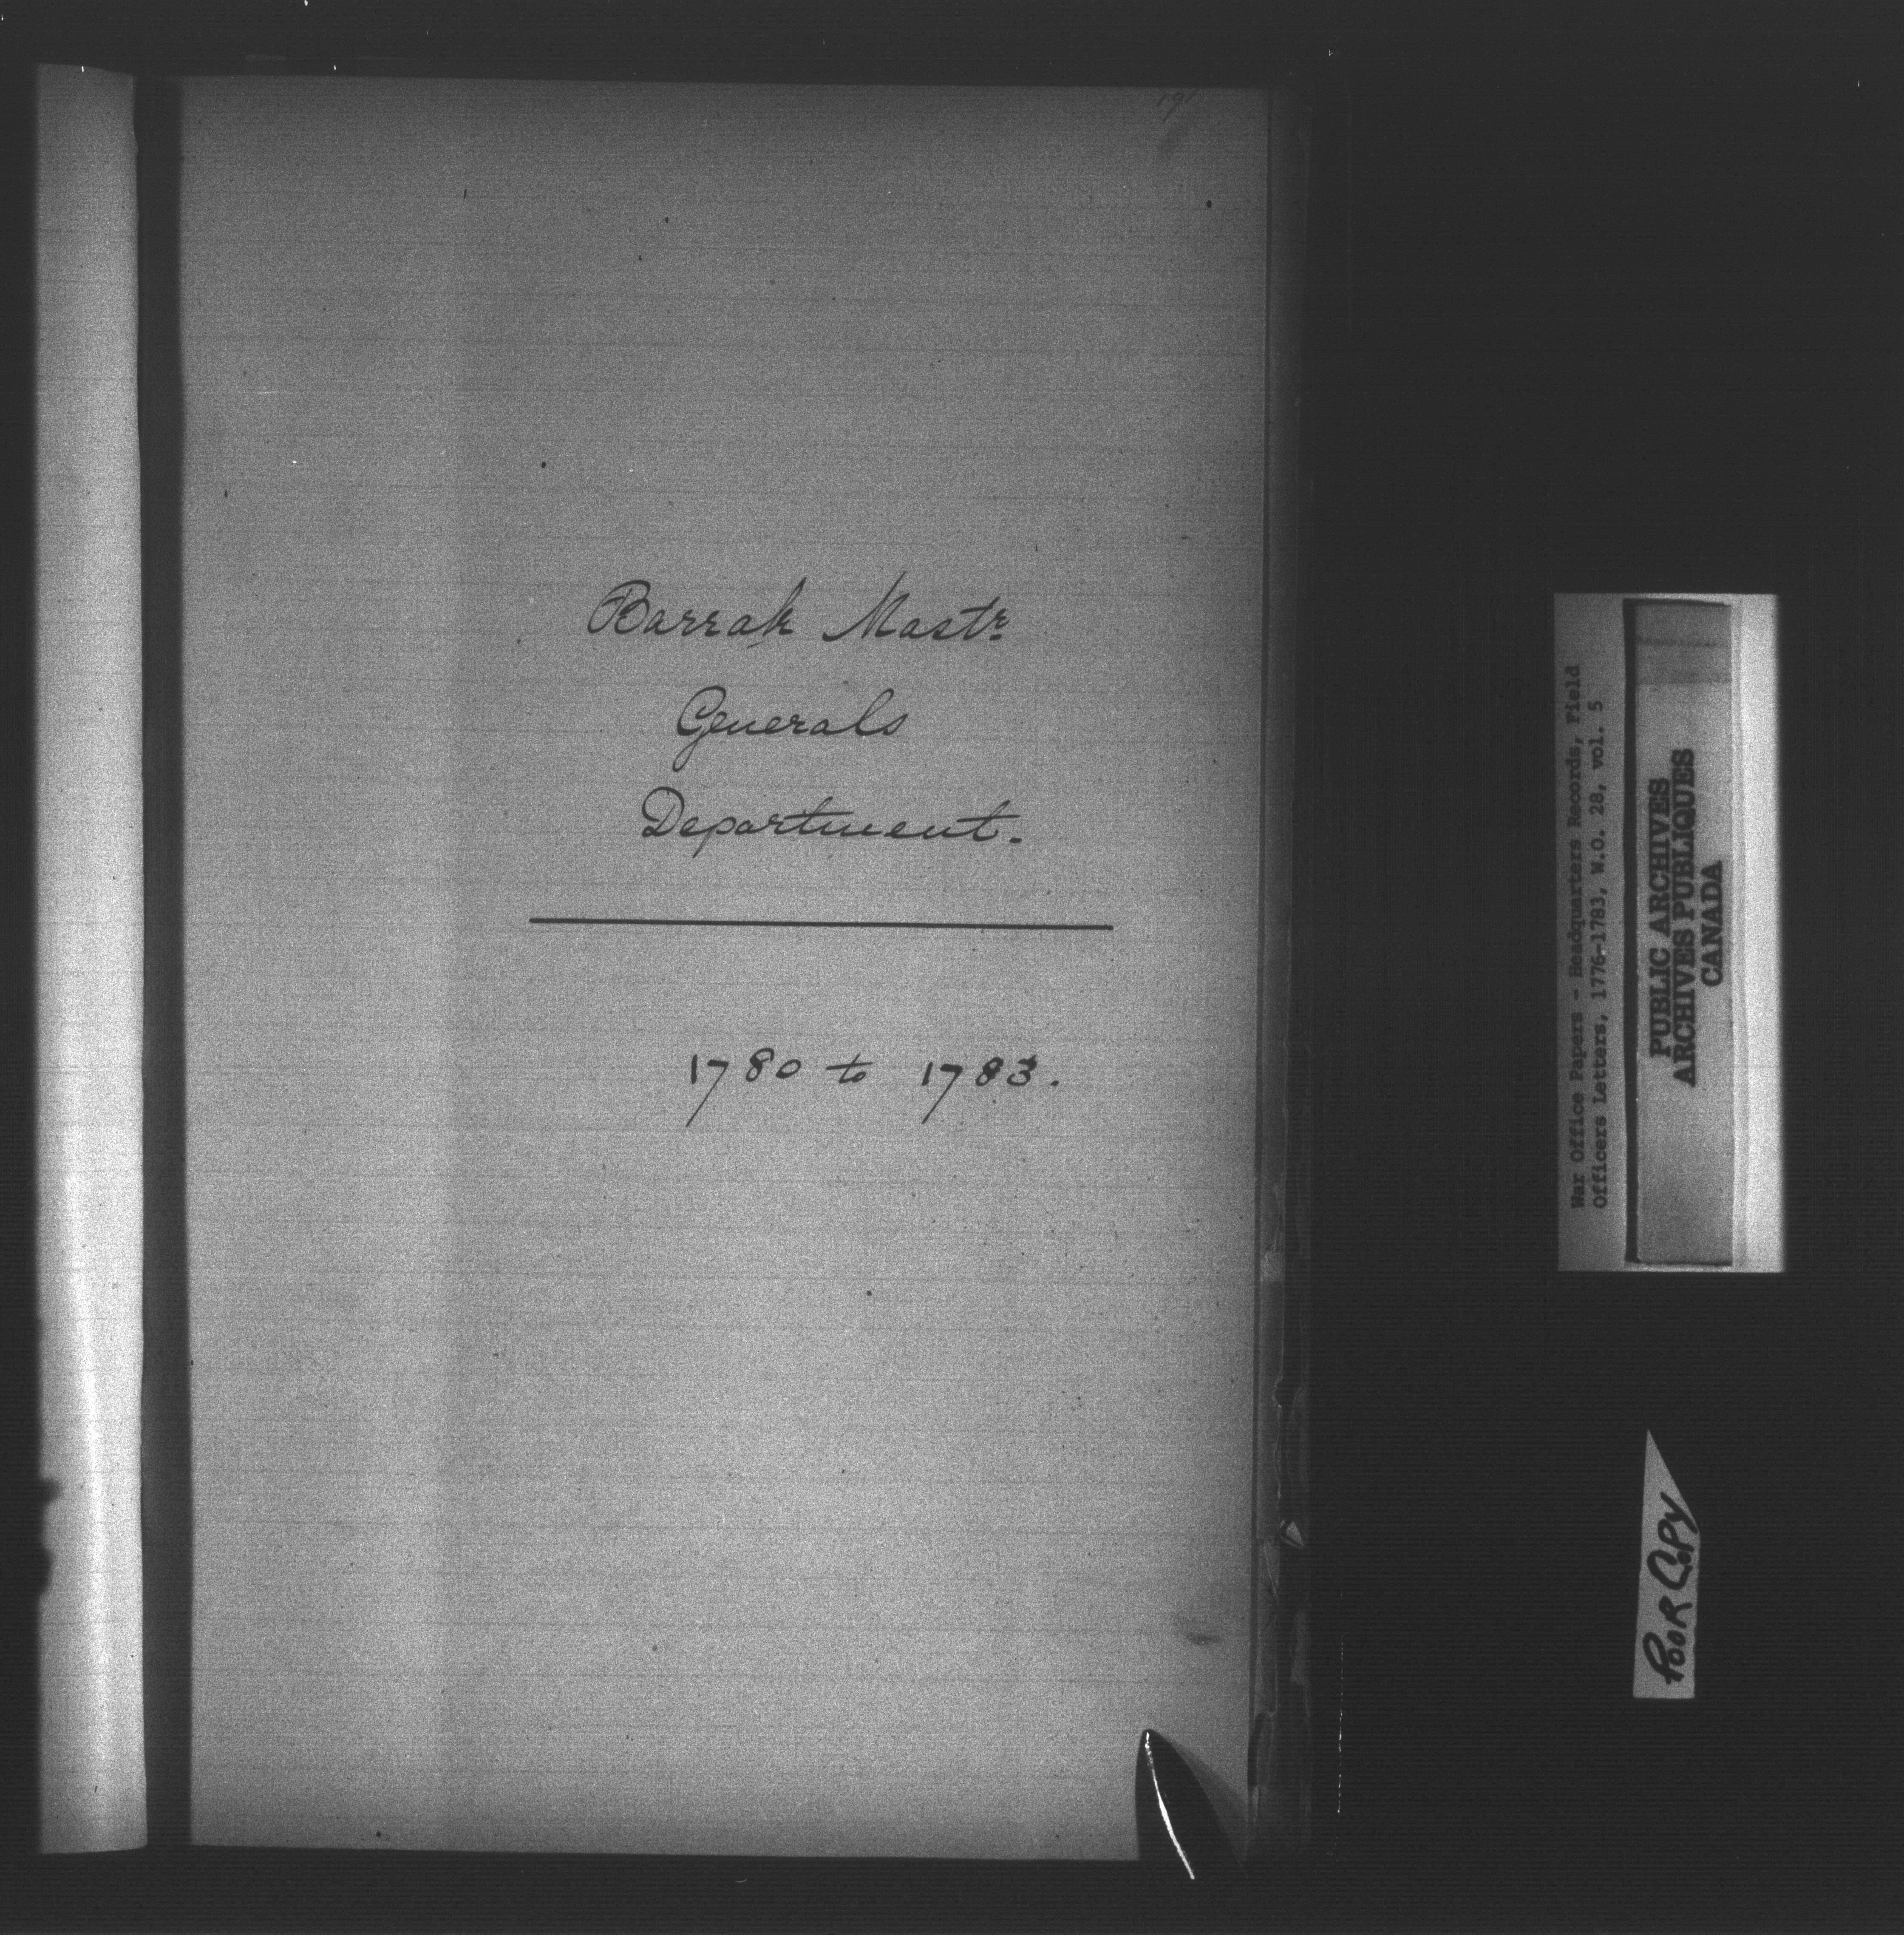 191
Barrak Mastr
Generals
Department.
1780 to 1783.
War Office Papers - Headquarters Records, Field
Officers Letters, 1776-1783, W.O. 28, vol. 5
PUBLIC ARCHIVES
ARCHIVES PUBLIQUES
CANADA
POOR COPY